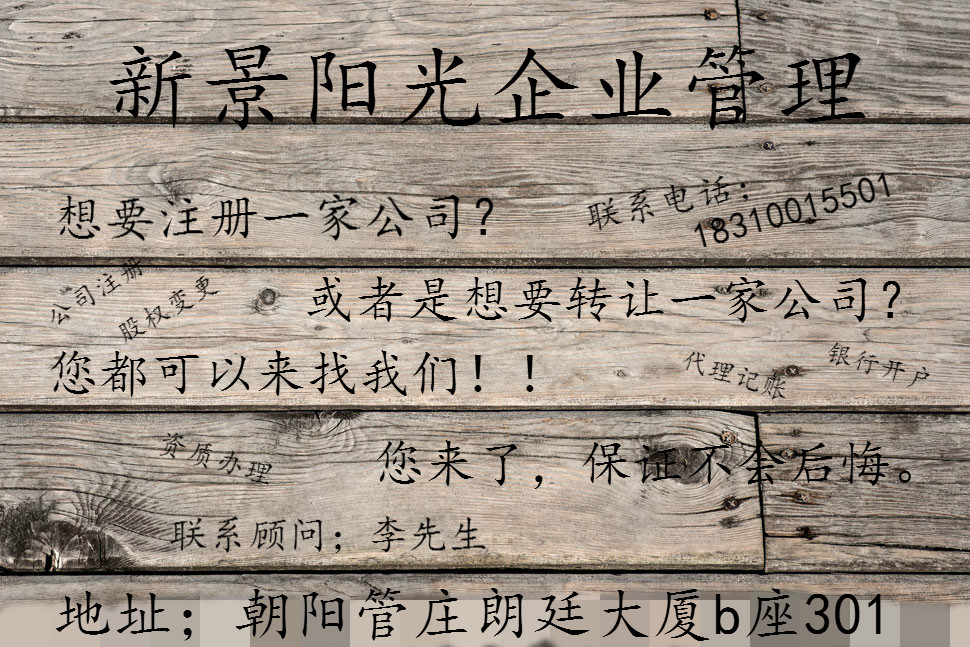 新景阳光企业管理
想要注册一家公司?
联系电话;
18310015501
公司注册
股权变更
或者是想要转让一家公司?
您都可以来找我们！！
代理记账
银行开户
资质办理
您来了，保证不会后悔。
联系顾问；李先生
地址；朝阳管庄朗廷大厦b座301